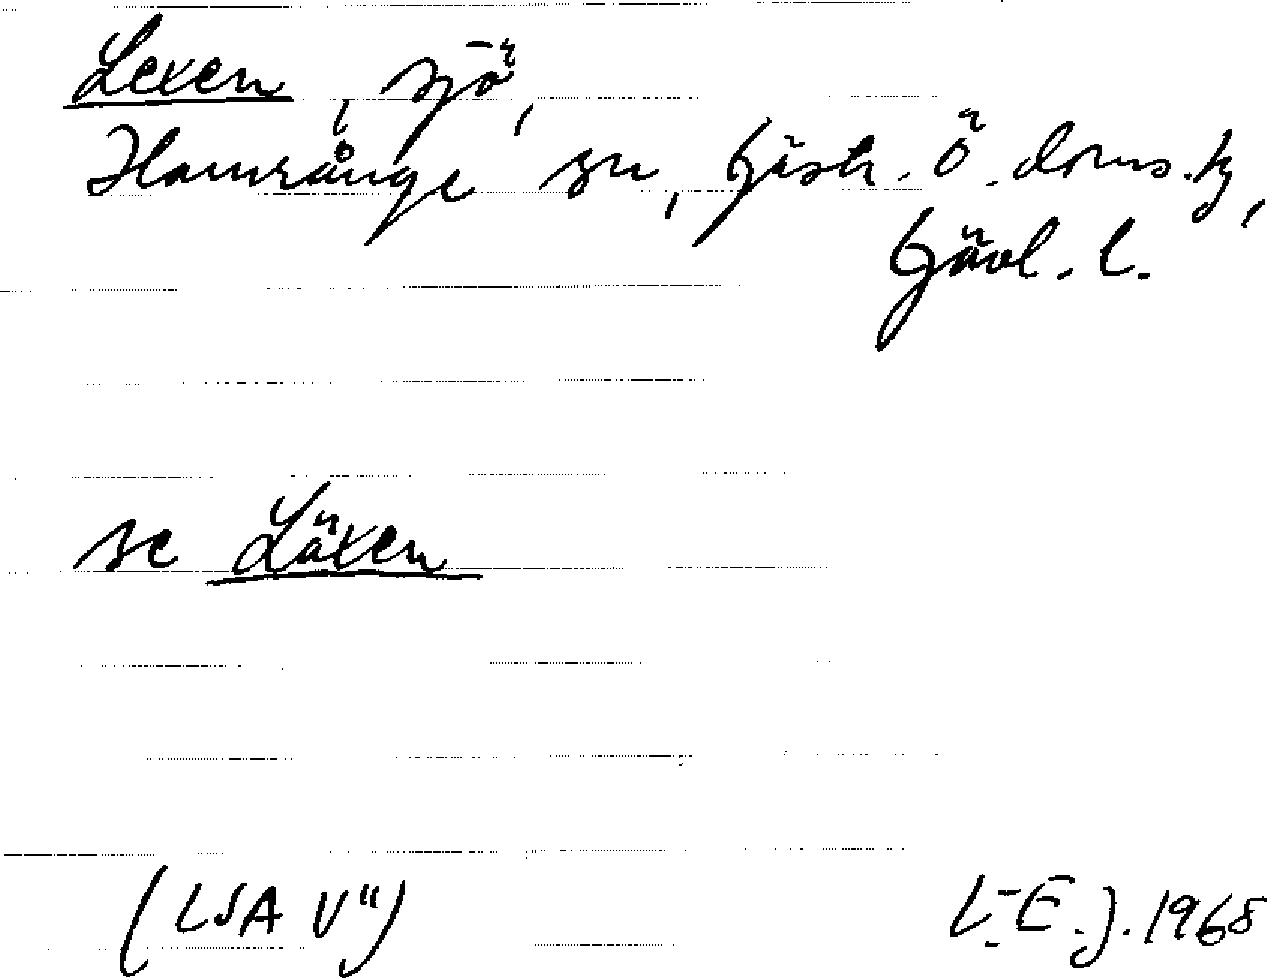 Lexen, sjö,
Hamrånge sn, Gästr. Ö. doms.,
Gävl. l.
se Läxen
(LSA V")
L-E. J. 1968